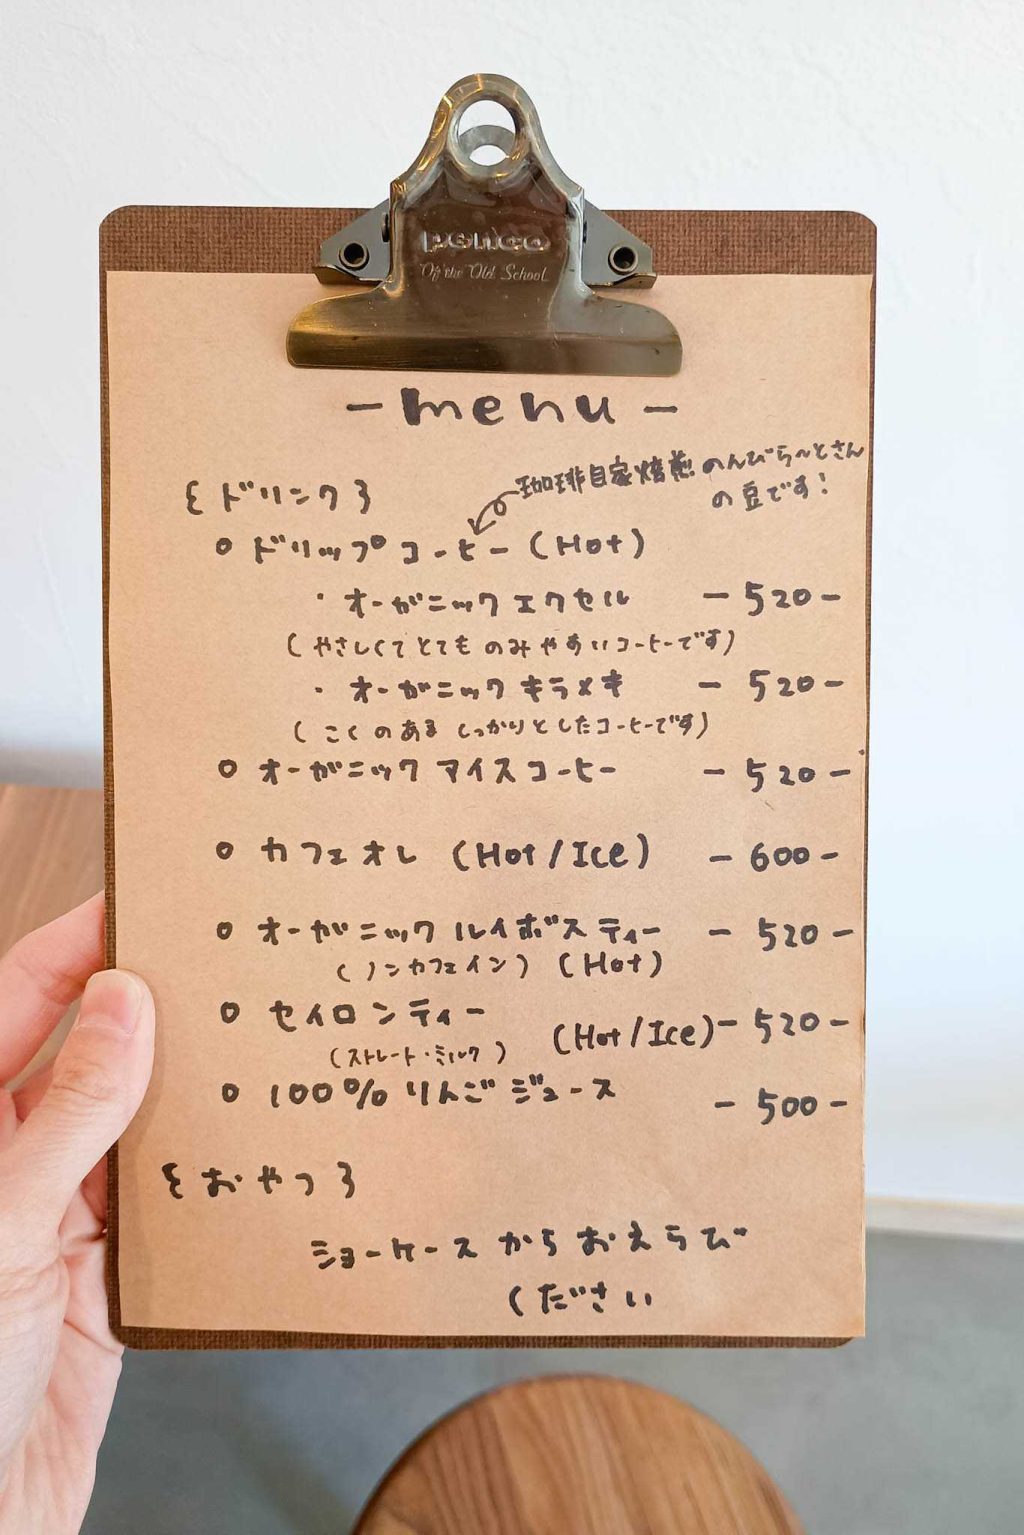 penco
Of the Old School
- menu -
珈琲自家焙煎 のんびら〜とさん
の豆です!
{ドリンク}
○ ドリップコーヒー (Hot)
・オーガニック エクセル -520-
(やさしくてとても のみやすいコーヒーです)
・オーガニック キラメキ -520-
(こくのある しっかりとしたコーヒーです)
○ オーガニック アイスコーヒー -520-
○ カフェオレ (Hot/Ice) -600-
○ オーガニック ルイボスティー -520-
(ノンカフェイン) (Hot)
○ セイロンティー
(ストレート・ミルク) (Hot/Ice) -520-
○ 100%りんごジュース -500-
{おやつ}
ショーケースからおえらび
ください